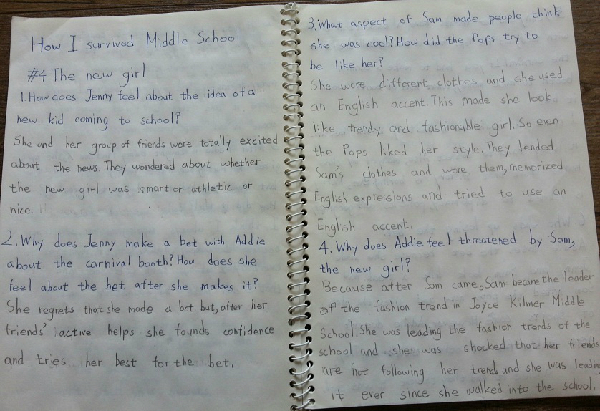 How I survived Middle Schoo
#4 The new girl
1. How coes Jenny feel about the idea of a
new kid coming to school?
She and her group of friends were totally excited
about the news. They wondered about whether
the new girl was smart or athletic or
nice
2. Why does Jenny make a bet with Addie
about the carnival booth? How does she
feel about the bet after she makes it?
She regrets that she made a bet but, after her
friends' iactive helps she founds confidence
and tries her best for the bet.
3. What aspect of Sam made people think
she was cool? How did the Pops try to
be like her?
She wore different clothes and she used
an English accent. This made she look
like trendy and fashionable girl. So even
the Pops liked her style. They lended
Sam's clothes and wore them, memorized
English expressions and tried to use an
English accent.
4. Why does Addie feel threatened by Sam,
the new girl?
Because after Sam came, Sam became the leader
of the fashion trend in Joyce Kilmer Middle
School. She was leading the fashion trends of the
school and she was shocked that her friends
are not following her trend and she was leading
it ever since she walked into the school.